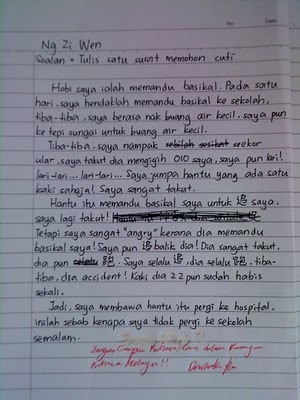 No
Date
Ng Zi Wen
Soalan • Tulis satu surat memohon cuti
Hobi saya ialah memandu basikal. Pada satu
hari, saya hendaklah memandu basikal ke sekolah,
tiba-tiba, saya berasa nak buang air kecil, saya pun
ke tepi sungai untuk buang air kecil.
Tiba-tiba, saya nampak seekor
ular, saya takut dia mengigih OIO saya, saya pun lari!
lari-lari... lari-lari... Saya jumpa hantu yang ada satu
kaki sahaja! Saya sangat takut.
Hantu itu memandu basikal saya untuk 追 saya,
saya lagi takut!
Tetapi saya sangat "angry" kerana dia memandu
basikal saya! Saya pun 追 balik dia! Dia sangat takut,
dia pun 跑. Saya selalu 追, dia selalu 跑, tiba-
tiba, dia accident! Kaki dia 22 pun sudah habis
sekali.
Jadi, saya membawa hantu itu pergi ke hospital,
inilah sebab kenapa saya tidak pergi ke sekolah
semalam.
Jangan Campur Bahasa Cina dalam Karangan
Bahasa Melayu!!